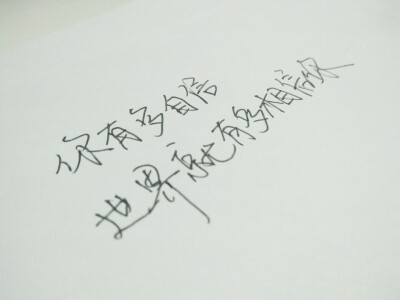 你有多自信
世界就有多相信你